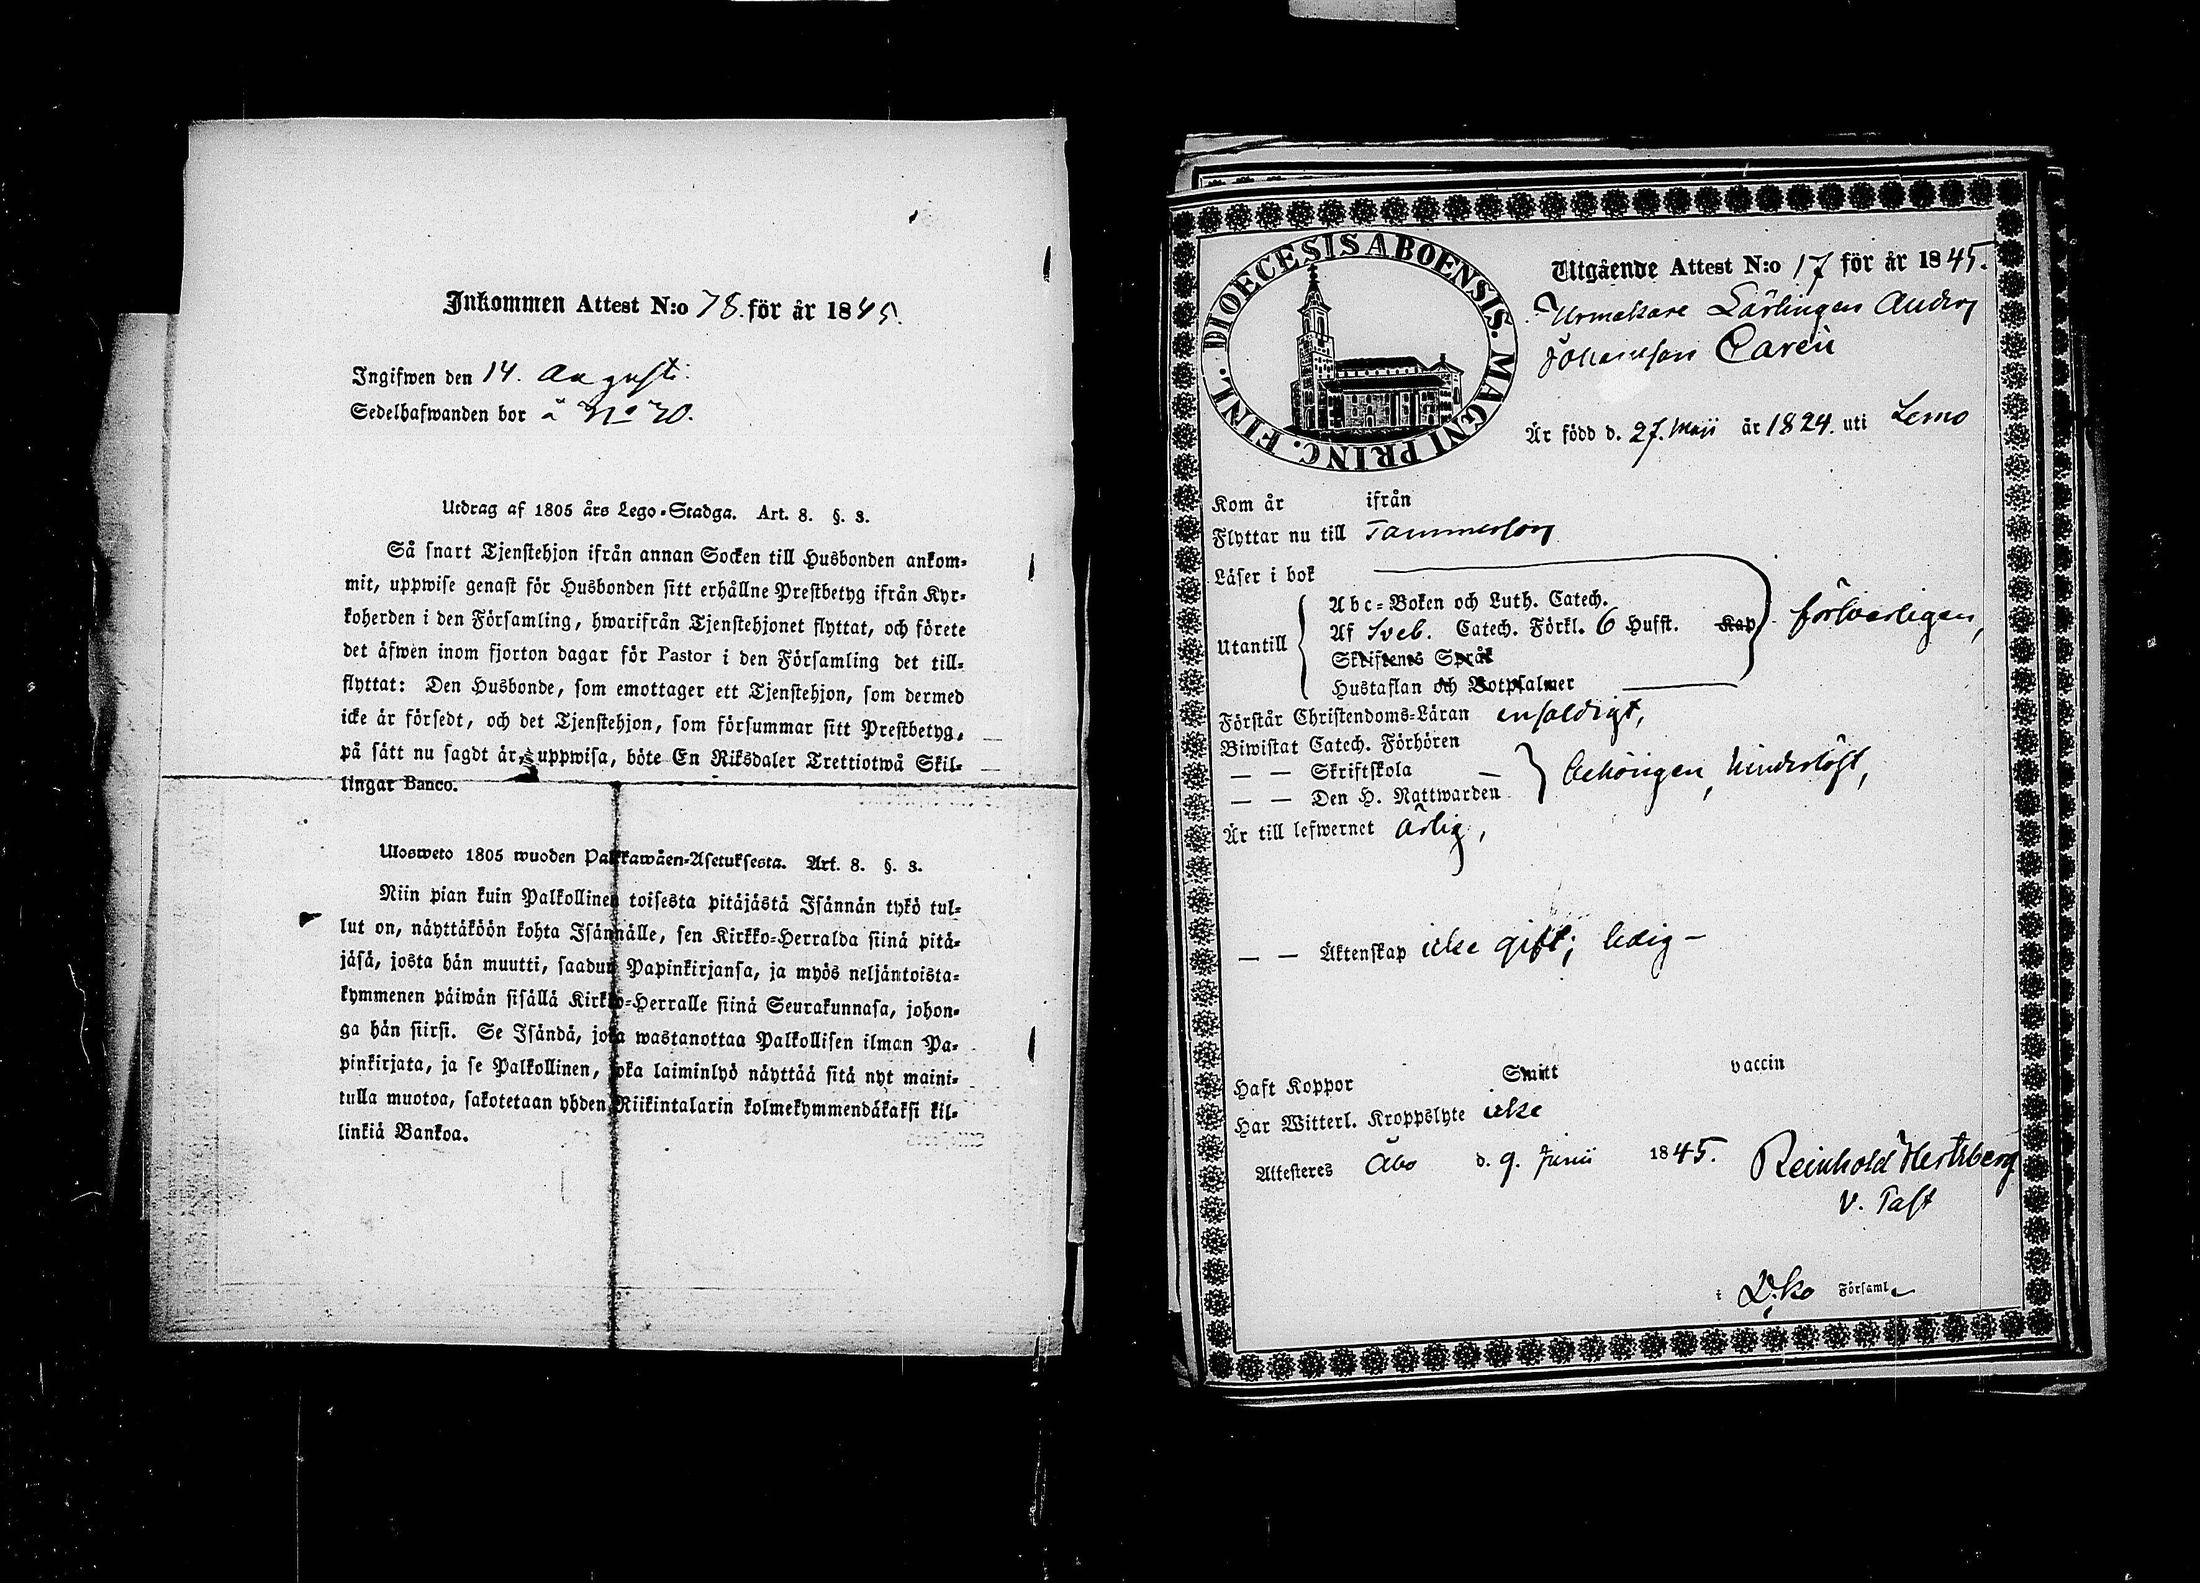 Inkommen Attest N:o 78. för år 1845.
Ingifwen den 14. Augusti.
Sedelhafwanden bor å No 20.
Utdrag af 1805 års Lego-Stadga. Art. 8. §. 3.
Så snart Tjenstehjon ifrån annan Socken till Husbonden ankom-
mit, uppwise genast för Husbonden sitt erhållne Prestbetyg ifrån Kyr-
koherden i den Församling, hwarifrån Tjenstehjonet flyttat, och förete
det äfwen inom fjorton dagar för Pastor i den Församling det till-
flyttat: Den Husbonde, som emottager ett Tjenstehjon, som dermed
icke är försedt, och det Tjenstehjon, som försummar sitt Prestbetyg,
på sätt nu sagdt är, uppwisa, böte En Riksdaler Trettiotwå Skil-
lingar Banco.
Ulosweto 1805 wuoden Palkkawäen-Asetuksesta. Art. 8. §. 3.
Niin pian kuin Palkollinen toisesta pitäjästä Isännän tykö tul-
lut on, näyttäköön kohta Isännälle, sen Kirkko-Herralda siinä pitä-
jäsä, josta hän muutti, saadun Papinkirjansa, ja myös neljäntoista-
kymmenen päiwän sisällä Kirkko-Herralle siinä Seurakunnasa, johon-
ga hän siirsi. Se Isändä, joka wastanottaa Palkollisen ilman Pa-
pinkirjata, ja se Palkollinen, joka laiminlyö näyttää sitä nyt maini-
tulla muotoa, sakotetaan yhden Riikintalarin kolmekymmendäkaksi kil-
linkiä Bankoa.
DIOECESIS ABOENSIS. MAGNI PRINC. FINL.
Utgående Attest N:o 17 för år 1845.
Urmakare Lärlingen Anders
Johansson Carén
Är född d. 27. Maji år 1824. uti Lemo
Kom år ifrån
Flyttar nu till Tammerfors
Läser i bok
Abc-Boken och Luth. Catech.
Utantill Af Sveb. Catech. Förkl. 6 Hufst. Kap försvarligen,
Skriftenes Språk
Hustaflan och Botpsalmer
Förstår Christendoms-Läran enfaldigt,
Biwistat Catech. Förhören
— — Skriftskola — behörigen, hinderlöst,
— — Den H. Nattwarden
Är till lefwernet ärlig,
— — Äktenskap icke gift; ledig —
Haft Koppor Smitt vaccin
Har Witterl. Kroppslyte icke
Attesteres Åbo d. 9. Junii 1845. Reinhold Hertzberg
V. Past
i Församl.